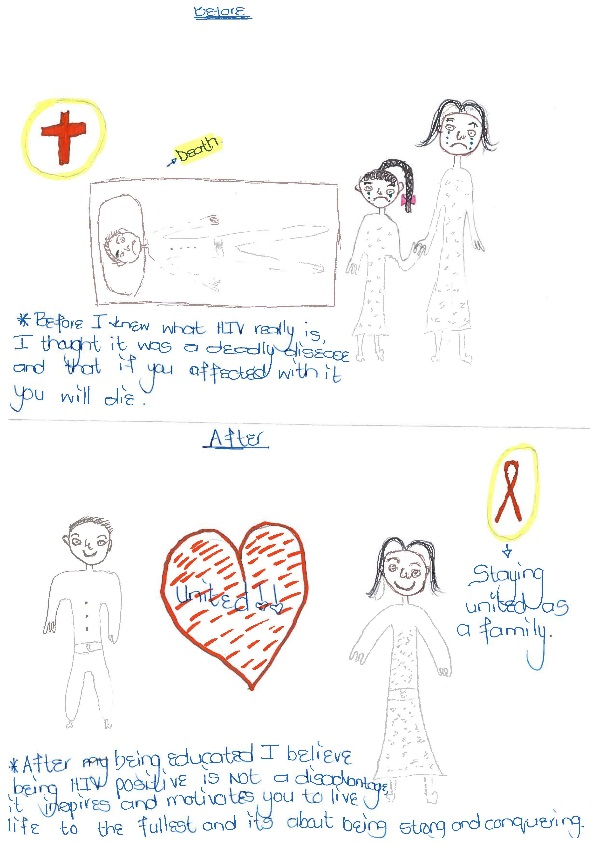 Before
Death
*Before I knew what HIV really is,
I thought it was a deadly disease
and that if you affected with it
you will die.
After
united!!
Staying
united as
a family.
*After my being educated I believe
being HIV positive is not a disadvantage
it inspires and motivates you to live
life to the fullest and its about being strong and conquering.